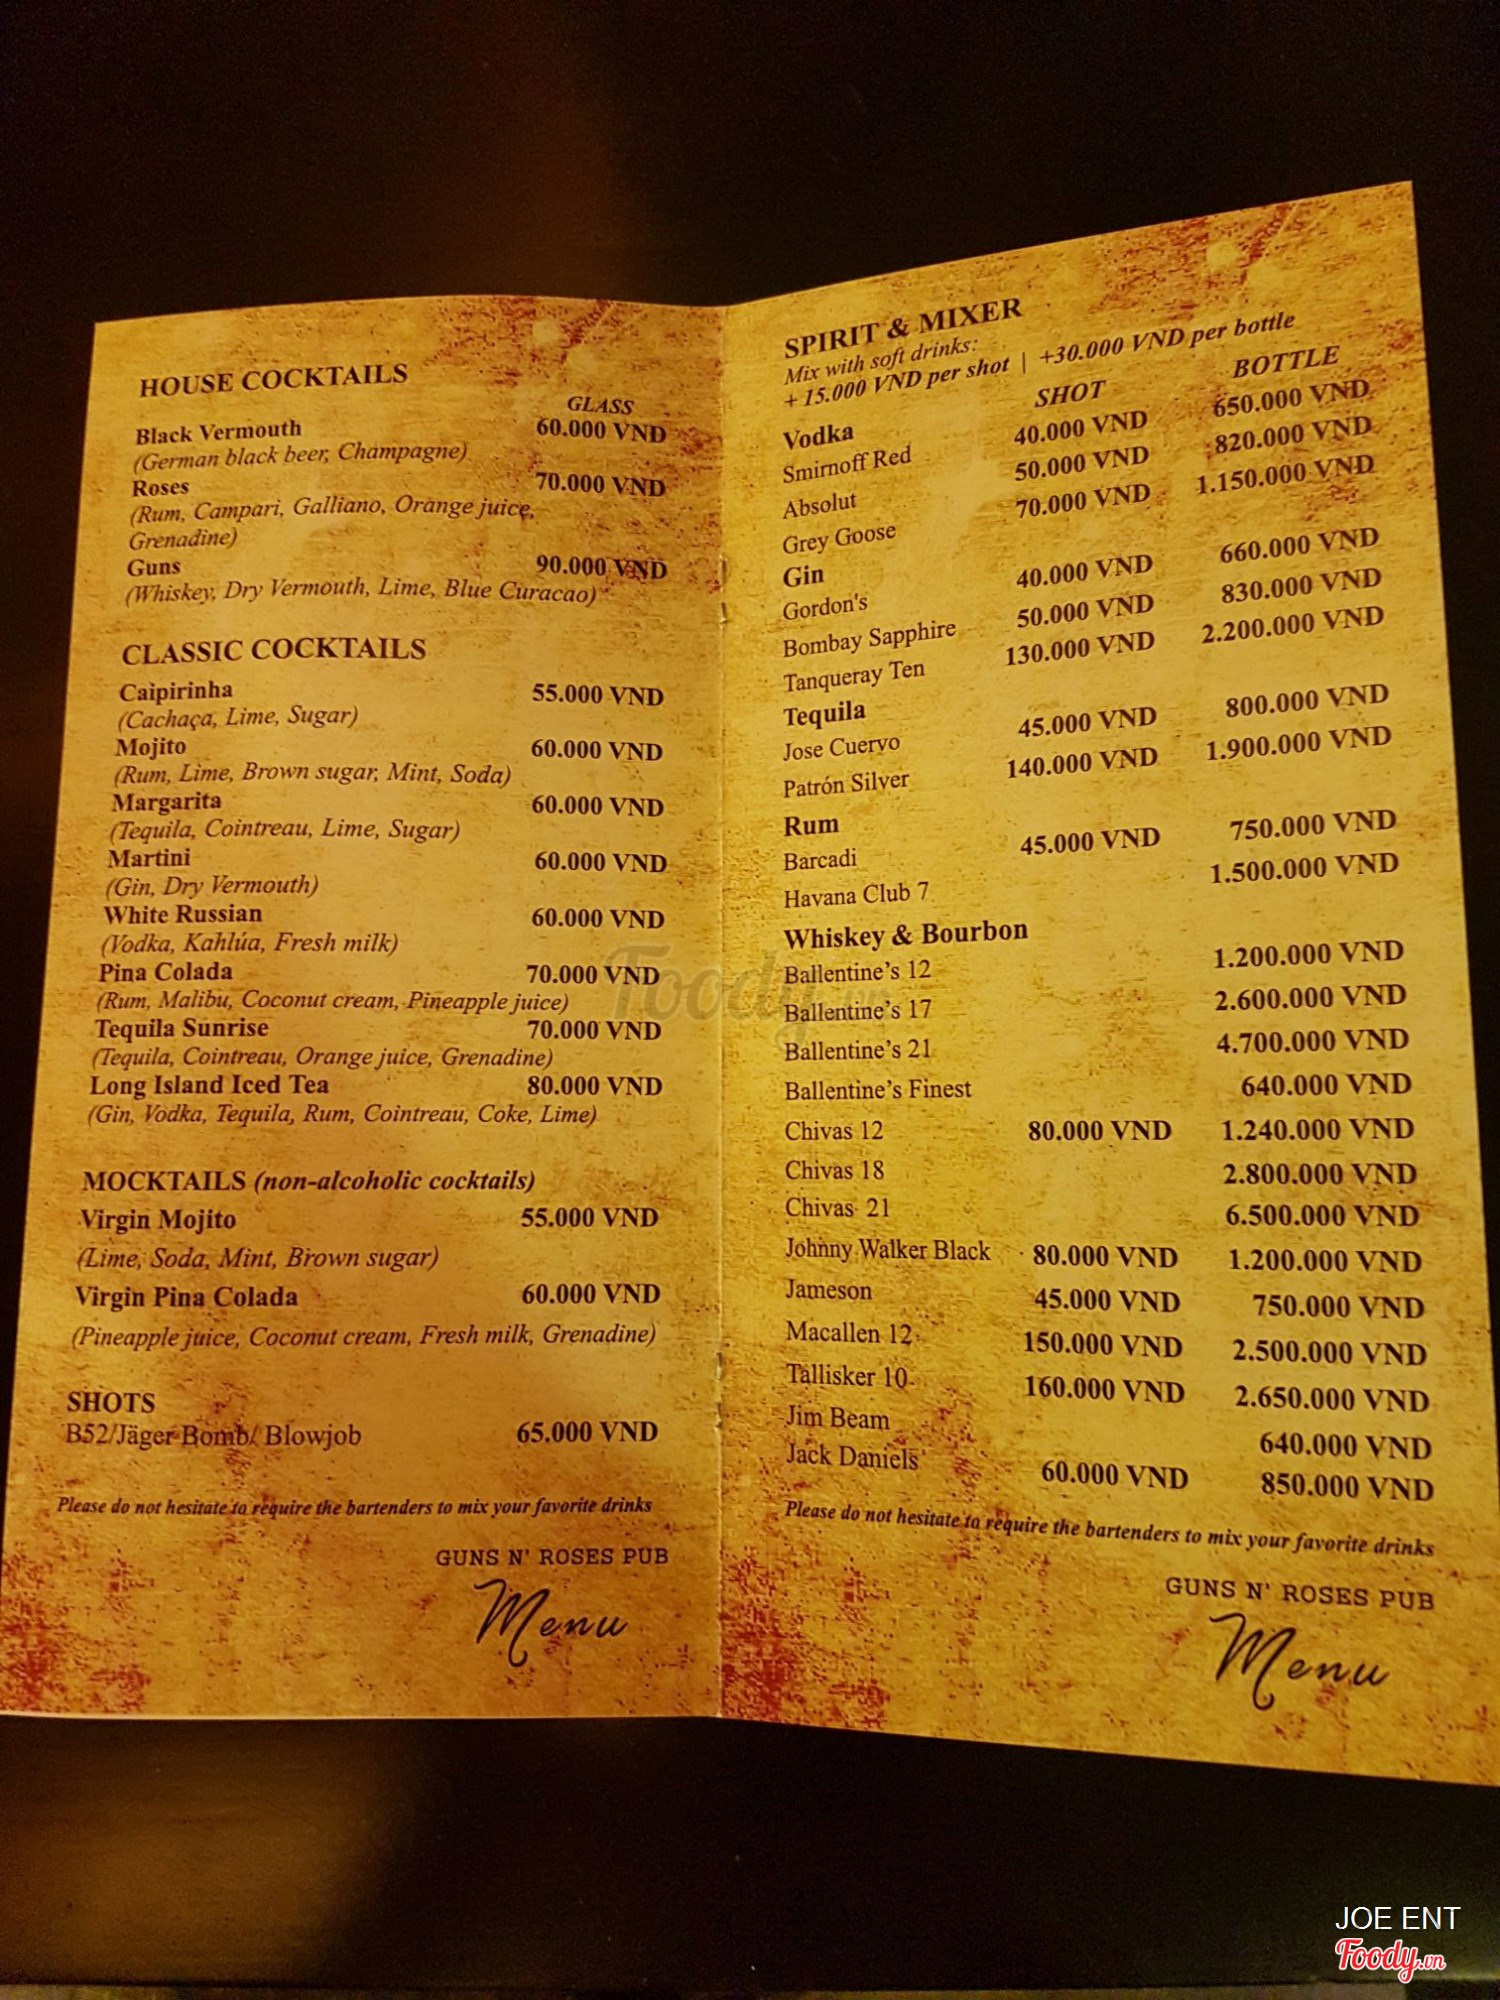 HOUSE COCKTAILS
GLASS
Black Vermouth 60.000 VND
(German black beer, Champagne)
Roses 70.000 VND
(Rum, Campari, Galliano, Orange juice,
Grenadine)
Guns 90.000 VND
(Whiskey, Dry Vermouth, Lime, Blue Curacao)
CLASSIC COCKTAILS
Caipirinha 55.000 VND
(Cachaça, Lime, Sugar)
Mojito 60.000 VND
(Rum, Lime, Brown sugar, Mint, Soda)
Margarita 60.000 VND
(Tequila, Cointreau, Lime, Sugar)
Martini 60.000 VND
(Gin, Dry Vermouth)
White Russian 60.000 VND
(Vodka, Kahlúa, Fresh milk)
Pina Colada 70.000 VND
(Rum, Malibu, Coconut cream, Pineapple juice)
Tequila Sunrise 70.000 VND
(Tequila, Cointreau, Orange juice, Grenadine)
Long Island Iced Tea 80.000 VND
(Gin, Vodka, Tequila, Rum, Cointreau, Coke, Lime)
MOCKTAILS (non-alcoholic cocktails)
Virgin Mojito 55.000 VND
(Lime, Soda, Mint, Brown sugar)
Virgin Pina Colada 60.000 VND
(Pineapple juice, Coconut cream, Fresh milk, Grenadine)
SHOTS
B52/Jäger Bomb/ Blowjob 65.000 VND
Please do not hesitate to require the bartenders to mix your favorite drinks
GUNS N' ROSES PUB
Menu
SPIRIT & MIXER
Mix with soft drinks:
+ 15.000 VND per shot | +30.000 VND per bottle
SHOT BOTTLE
Vodka
Smirnoff Red 40.000 VND 650.000 VND
Absolut 50.000 VND 820.000 VND
Grey Goose 70.000 VND 1.150.000 VND
Gin
Gordon's 40.000 VND 660.000 VND
Bombay Sapphire 50.000 VND 830.000 VND
Tanqueray Ten 130.000 VND 2.200.000 VND
Tequila
Jose Cuervo 45.000 VND 800.000 VND
Patrón Silver 140.000 VND 1.900.000 VND
Rum
Barcadi 45.000 VND 750.000 VND
Havana Club 7 1.500.000 VND
Whiskey & Bourbon
Ballentine’s 12 1.200.000 VND
Ballentine’s 17 2.600.000 VND
Ballentine’s 21 4.700.000 VND
Ballentine’s Finest 640.000 VND
Chivas 12 80.000 VND 1.240.000 VND
Chivas 18 2.800.000 VND
Chivas 21 6.500.000 VND
Johnny Walker Black 80.000 VND 1.200.000 VND
Jameson 45.000 VND 750.000 VND
Macallen 12 150.000 VND 2.500.000 VND
Tallisker 10 160.000 VND 2.650.000 VND
Jim Beam 640.000 VND
Jack Daniels 60.000 VND 850.000 VND
Please do not hesitate to require the bartenders to mix your favorite drinks
GUNS N' ROSES PUB
Menu
Foody.vn
JOE ENT
Foody.vn